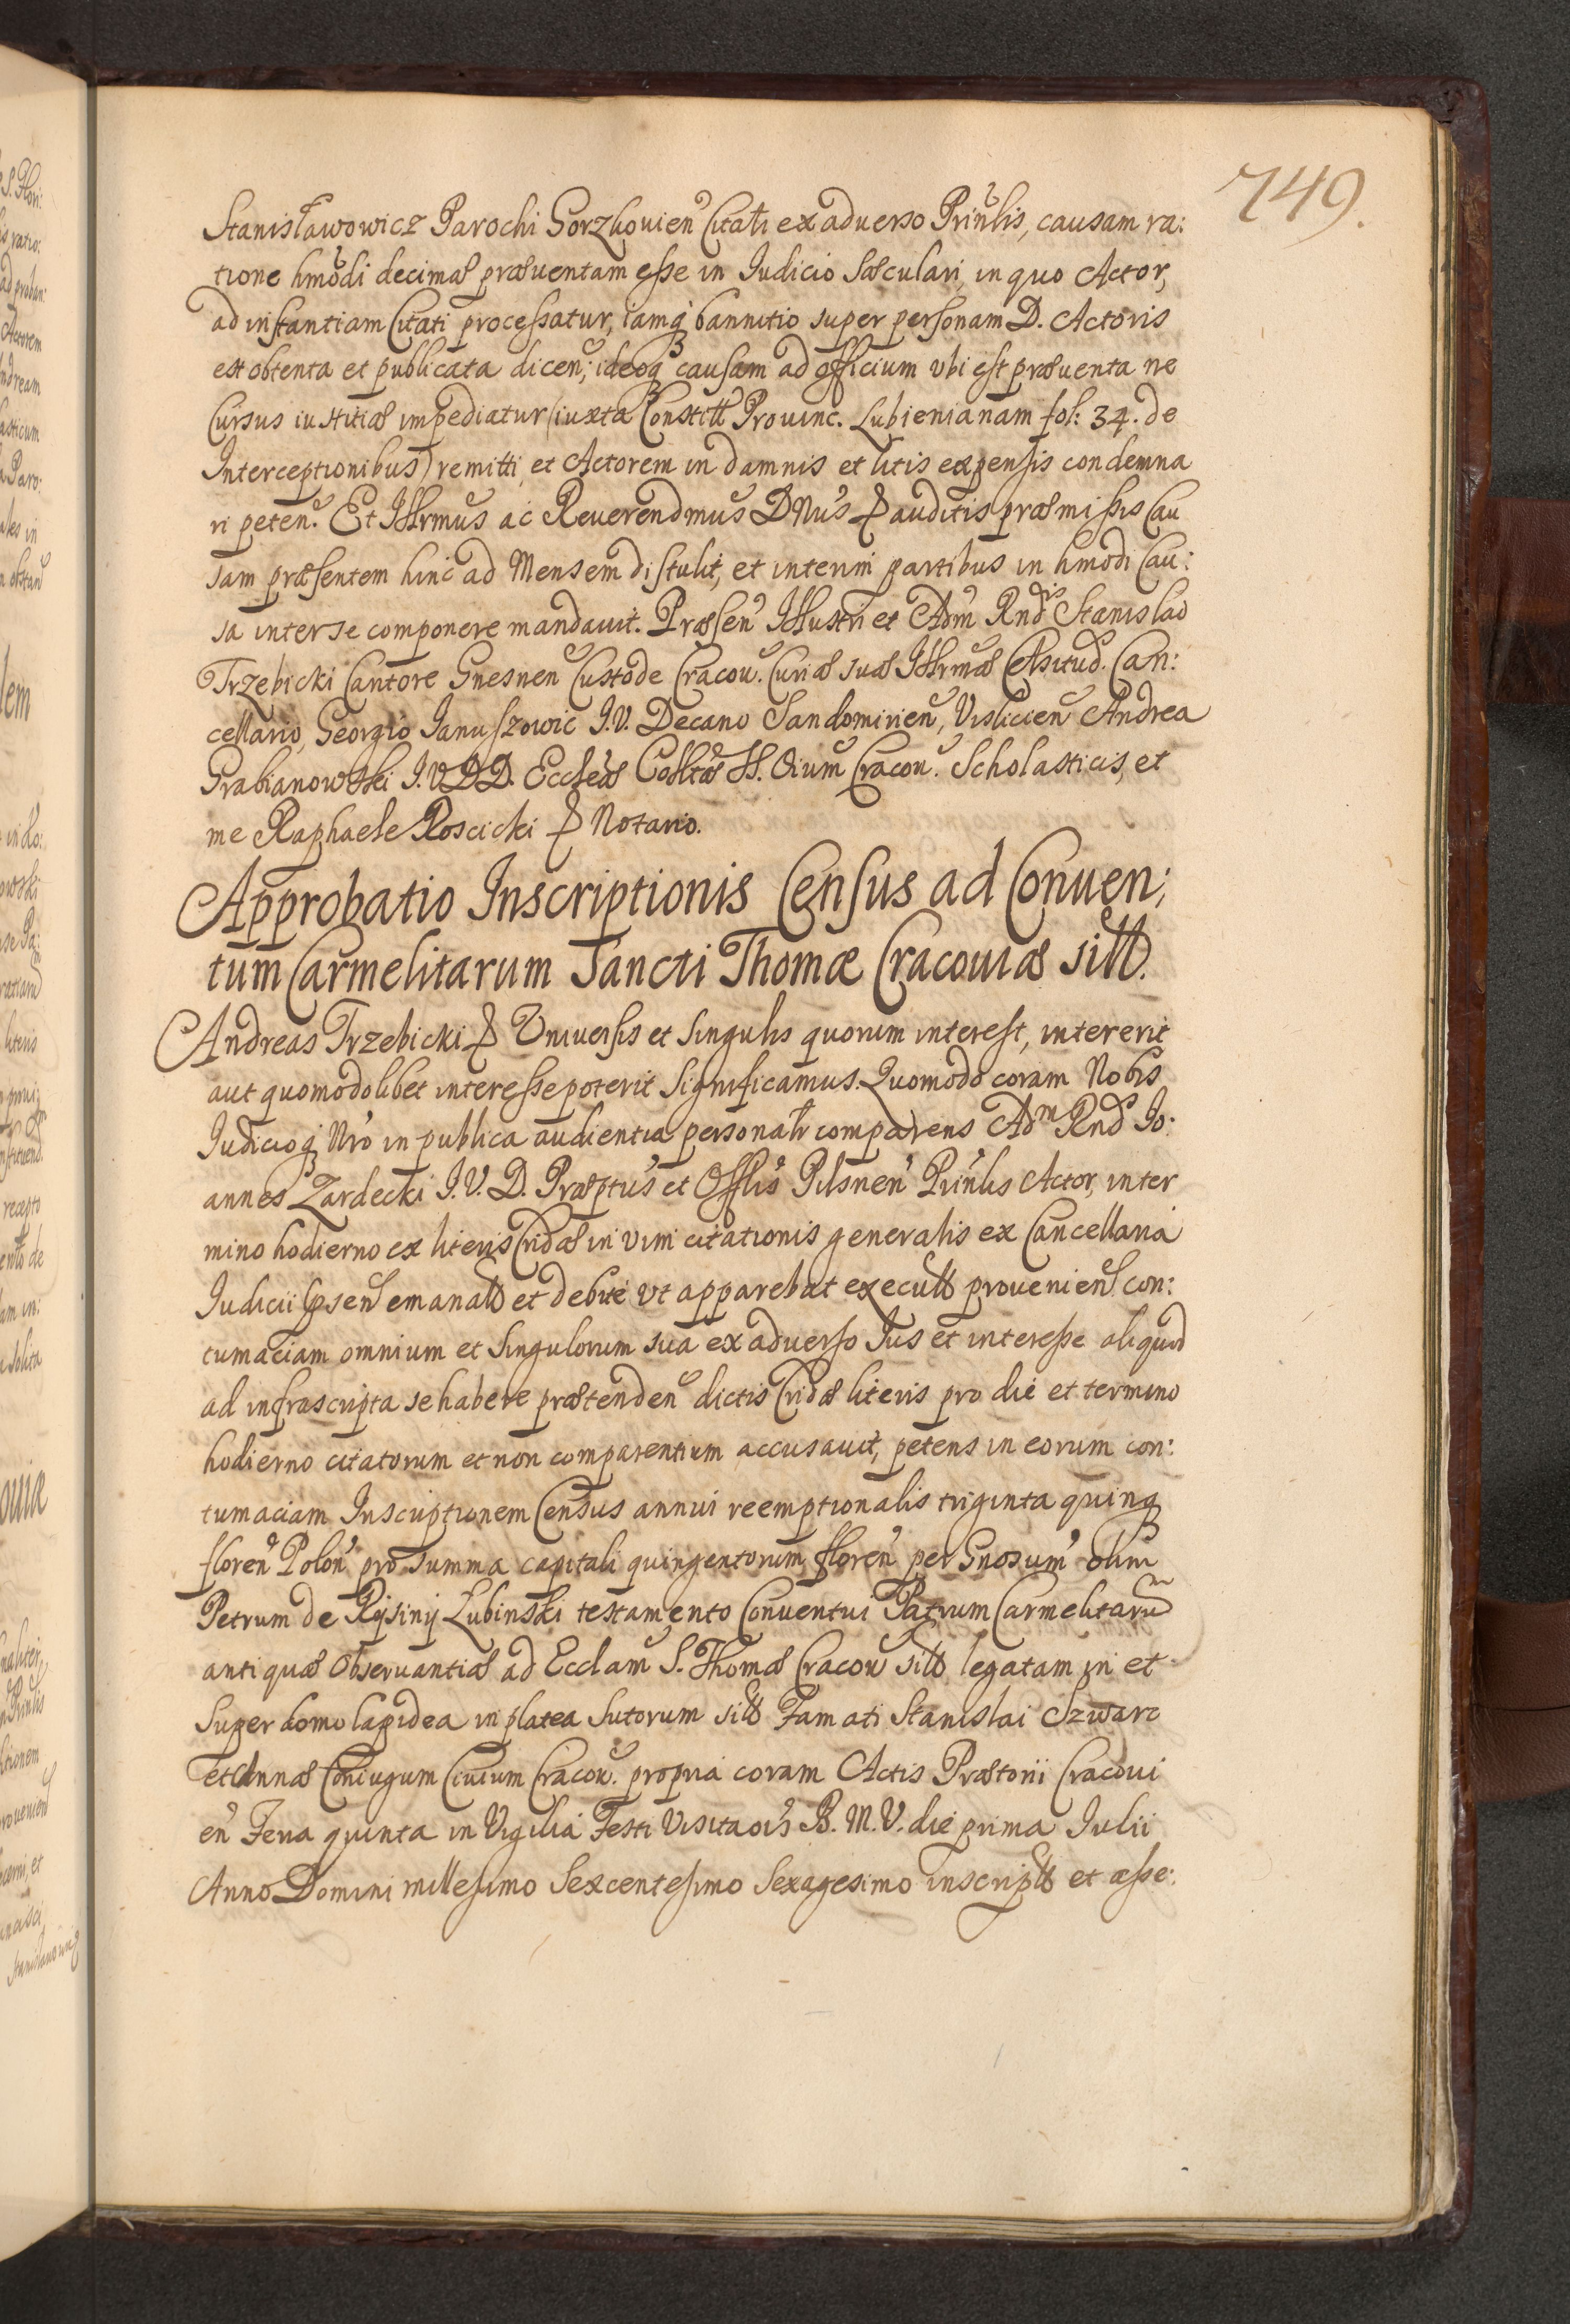 749.
Stanisławowicz Parochi Gorzkouien Citati ex aduerso Prinlis, causam ra:
tione hmodi decimæ præuentam esse in Iudicio Sæculari, in quo Actor,
ad instantiam Citati processatur, iamq bannitio super personam D. Actoris
est obtenta et publicata dicen; ideoq causam ad officium vbi est præuenta ne
Cursus iustitiæ impediatur (iuxta Constitt Prouinc. Lubienianam fol: 34. de
Interceptionibus) remitti, et Actorem in damnis et litis expensis condemna
ri peten. Et Illrmus ac Reuerendmus DNus & auditis præmissis Cau
sam præsentem hinc ad Mensem distulit, et interim partibus in hmodi Cau:
sa inter se componere mandauit. Præsen Illustri et Adm Rndis Stanislao
Trzebicki Cantore Gnesnen Custode Cracou. Curiæ suæ Illrmæ Celsitud. Can:
cellario, Georgio Ianuszowic I.V. Decano Sandomirien, Vislicien Andrea
Grabianowski I.V.DD. Eccleæ Colltæ SS. Oium Cracou. Scholasticis, et
me Raphaele Roscicki & Notario.
Approbatio Inscriptionis Census ad Conuen;
tum Carmelitarum Sancti Thomæ Cracouiæ sitt.
Andreas Trzebicki & Vniuersis et Singulis quorum interest, intererit
aut quomodolibet interesse poterit Significamus. Quomodo coram Nobis
Iudicioq Nro in publica audientia personalr comparens Adm Rnd Io:
annes Zardecki I.V.D. Præptus et Offlis Pilsnen Prinlis Actor, in ter
mino hodierno ex literis Cridæ in vim citationis generalis ex Cancellaria
Iudicii Ipsen emanatt et debite vt apparebat executt prouenien con:
tumaciam omnium et Singulorum sua ex aduerso Ius et interesse aliquod
ad infrascripta se habere prætenden dictis Cridæ literis pro die et termino
hodierno citatorum et non comparentium accusauit, petens in eorum con:
tumaciam Inscriptionem Census annui reemptionalis triginta quinq
floren Polon pro summa capitali quingentorum floren per Gnosum olim
Petrum de Rysiny Lubinski testamento Conuentui Patrum Carmelitaru
antiquæ Obseruantiæ ad Ecclam S. Thomæ Cracou sitt legatam in et
Super domo lapidea in platea Sutorum sitt Famati Stanislai Szwarc
et Annæ Coniugum Ciuium Cracou. propria coram Actis Prætorii Cracoui
en Feria quinta in Vigilia Festi Visitaois B. M. V. die prima Iulii
Anno Domini millesimo Sexcentesimo Sexagesimo inscriptt et asse: